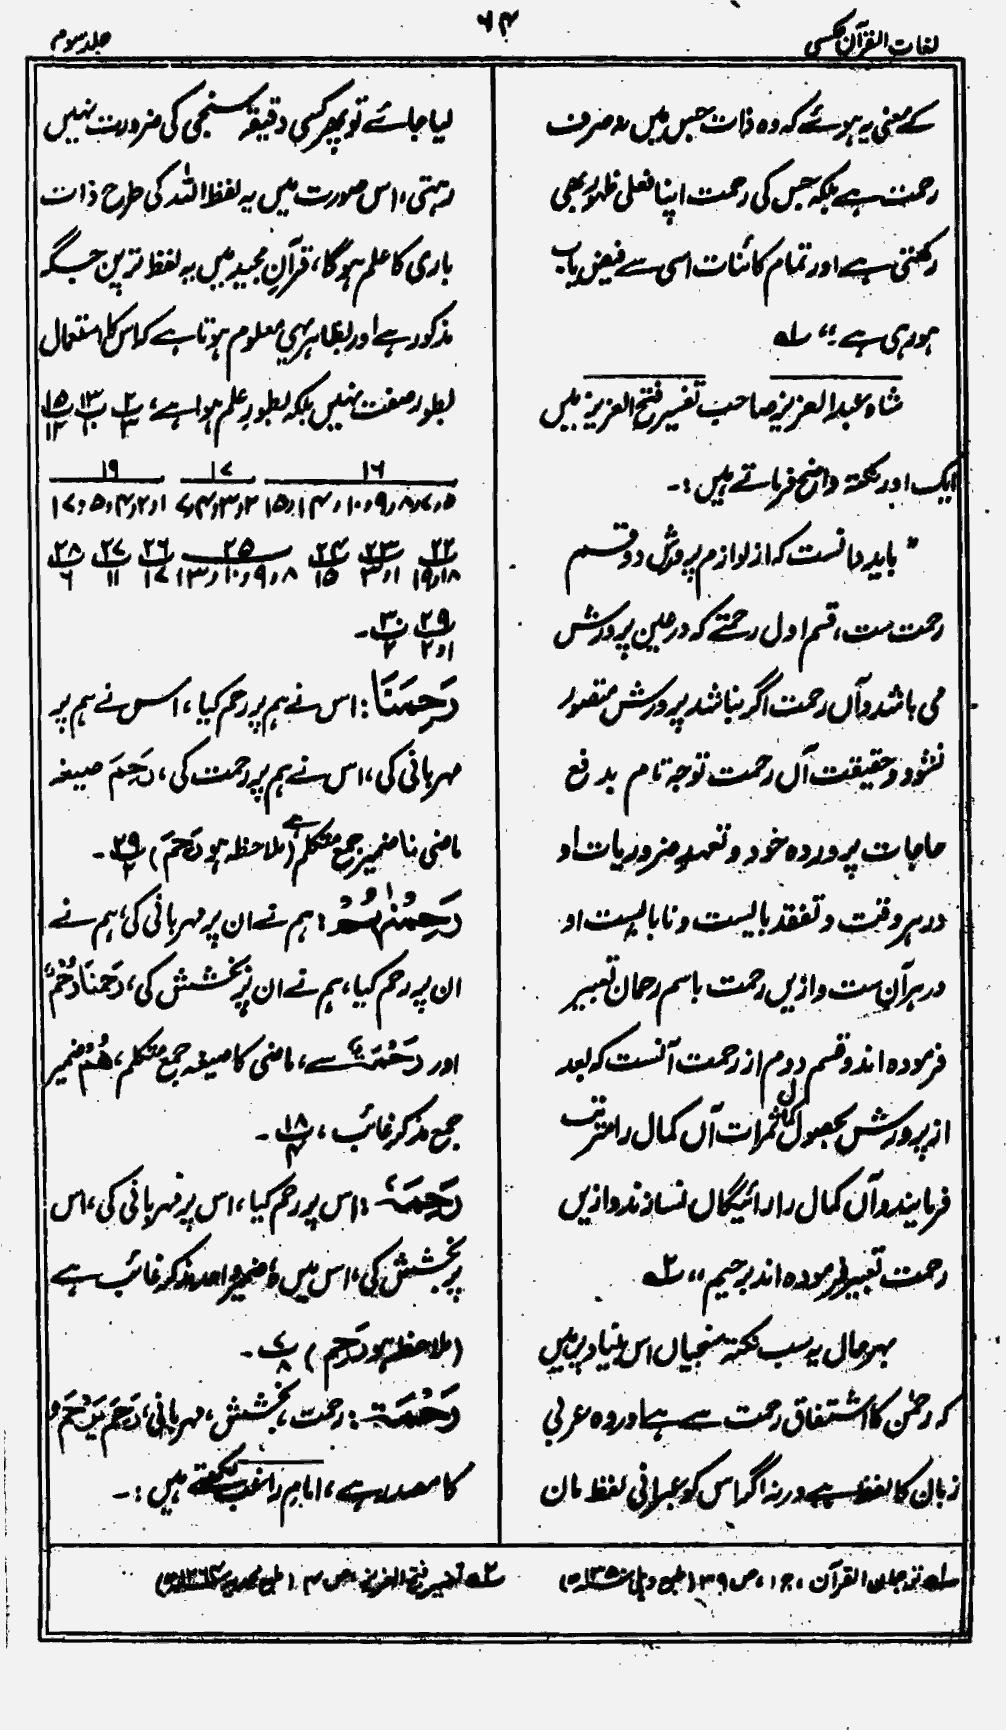 لغات القرآن عکسی
۶۴
جلد سوم
کے معنی یہ ہوئے کہ وہ ذات جس میں نہ صرف
رحمت ہے بلکہ جس کی رحمت اپنا فعلی ظہور بھی
رکھتی ہے اور تمام کائنات اسی سے فیض یاب
ہو رہی ہے ؛“ لہ
شاہ عبدالعزیز صاحب تفسیر فتح العزیز میں
ایک اور نکتہ واضح فرماتے ہیں :۔
” باید دانست کہ از لوازم پرورش دو قسم
رحمت ست، قسم اول رحمتے کہ در عین پرورش
می باشد و آں رحمت اگر نباشد پرورش متصور
نشود و حقیقت آں رحمت توجہ تام بدفع
حاجات پروردہ خود و تعہد ضروریات او
در ہر وقت و تفقد بالیست و نابالیست او
در ہر آن ست و ازیں رحمت باسم رحمان تعبیر
فرمودہ اند و قسم دوم از رحمت آنست کہ بعد
از پرورش بحصول کمال ثمرات آں کمال را مترتب
فرمایند و آں کمال را رائیگاں نسازند و ازیں
رحمت تعبیر فرمودہ اند برحیم “ ۲ہ
بہرحال یہ سب نکتہ سنجیاں اس بنیاد پر ہیں
کہ رحمٰن کا اشتقاق رحمت سے ہے اور وہ عربی
زبان کا لفظ ہے ورنہ اگر اس کو عبرانی لفظ مان
لیا جائے تو پھر کسی دقیقہ سنجی کی ضرورت نہیں
رہتی، اس صورت میں یہ لفظ اللہ کی طرح ذات
باری کا علم ہوگا، قرآن مجید میں یہ لفظ ترپن جگہ
مذکور ہے اور بظاہر یہی معلوم ہوتا ہے کہ اس کا استعمال
بطور صفت نہیں بلکہ بطور علم ہوا ہے، ۲ ۱۳ ۱۵
۳ ۱۰ ۱۲
۱۶ ۱۷ ۱۹
۵، ۷، ۸، ۹، ۱۰، ۱۴، ۱۵ ۲، ۳، ۴، ۷ ۱، ۲، ۴، ۵، ۱۷
۲۲ ۲۳ ۲۴ ۲۵ ۲۶ ۲۷ ۲۸
۱۸، ۱۹ ۱، ۳ ۱۵ ۸، ۹، ۱۰، ۱۳ ۱۷ ۱۱ ۶
۲۹ ۳۰ ۔
۱، ۲ ۲
رَحِمَنَا : اس نے ہم پر رحم کیا، اس نے ہم پر
مہربانی کی، اس نے ہم پر رحمت کی، رَحِمَ صیغہ
ماضی نا ضمیر جمع متکلم ہے (ملاحظہ ہو رَحِمَ) ۲۹ ۔
۲
رَحِمْنٰهُمْ : ہم نے ان پر مہربانی کی، ہم نے
ان پر رحم کیا، ہم نے ان پر بخشش کی،
اور رَحْمَةٌ سے، ماضی کا صیغہ جمع متکلم، هُمْ ضمیر
جمع مذکر غائب، ۱۸ ۔
۴
رَحِمَهٗ : اس پر رحم کیا، اس پر مہربانی کی، اس
پر بخشش کی، اس میں ہٗ ضمیر واحد مذکر غائب ہے
(ملاحظہ ہو رَحِمَ) ۷ ۔
۸
رَحْمَة : رحمت، بخشش، مہربانی، رَحِمَ يَرْحَمُ
کا مصدر ہے، امام راغب لکھتے ہیں :۔
لہ ترجمان القرآن، ج۱، ص ۳۹ (طبع دہلی ۱۳۵۰ھ)
۲ہ تفسیر فتح العزیز، ص ۴ (طبع